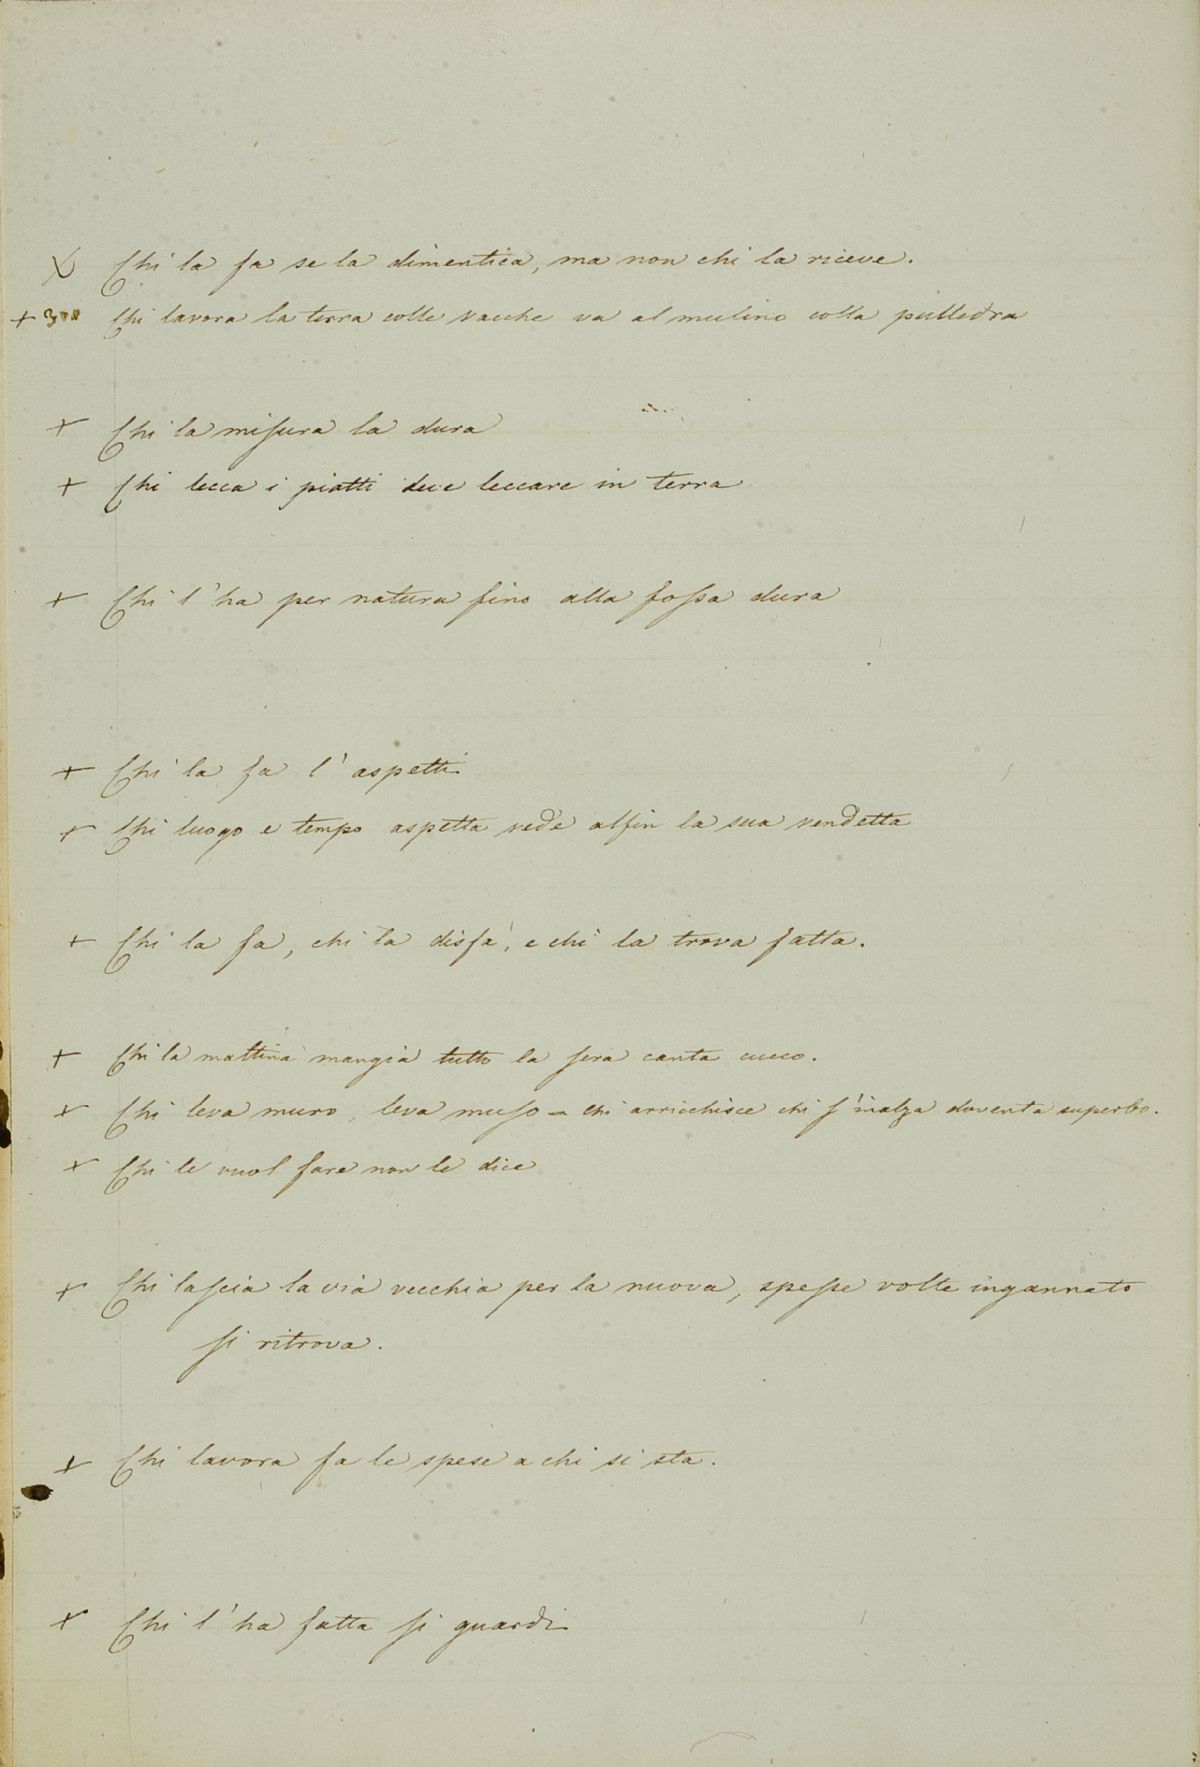 Chi la fa se la dimentica, ma non chi la riceve.
+ Chi lavora la terra colle vacche va al mulino colla pulledra
+ Chi la misura la dura
+ Chi lecca i piatti deve leccare in terra
+ Chi l'ha per natura fino alla fossa dura
+ Chi la fa l'aspetti
+ Chi luogo e tempo aspetta vede alfin la sua vendetta
+ Chi la fa, chi la disfa, e chi la trova fatta.
+ Chi la mattina mangia tutto la sera canta cucco.
+ Chi leva muro, leva muso – chi arricchisce chi s'inalza doventa superbo.
+ Chi le vuol fare non le dice
+ Chi lascia la via vecchia per la nuova, spesse volte ingannato
si ritrova.
+ Chi lavora fa le spese a chi si sta.
+ Chi l'ha fatta si guardi